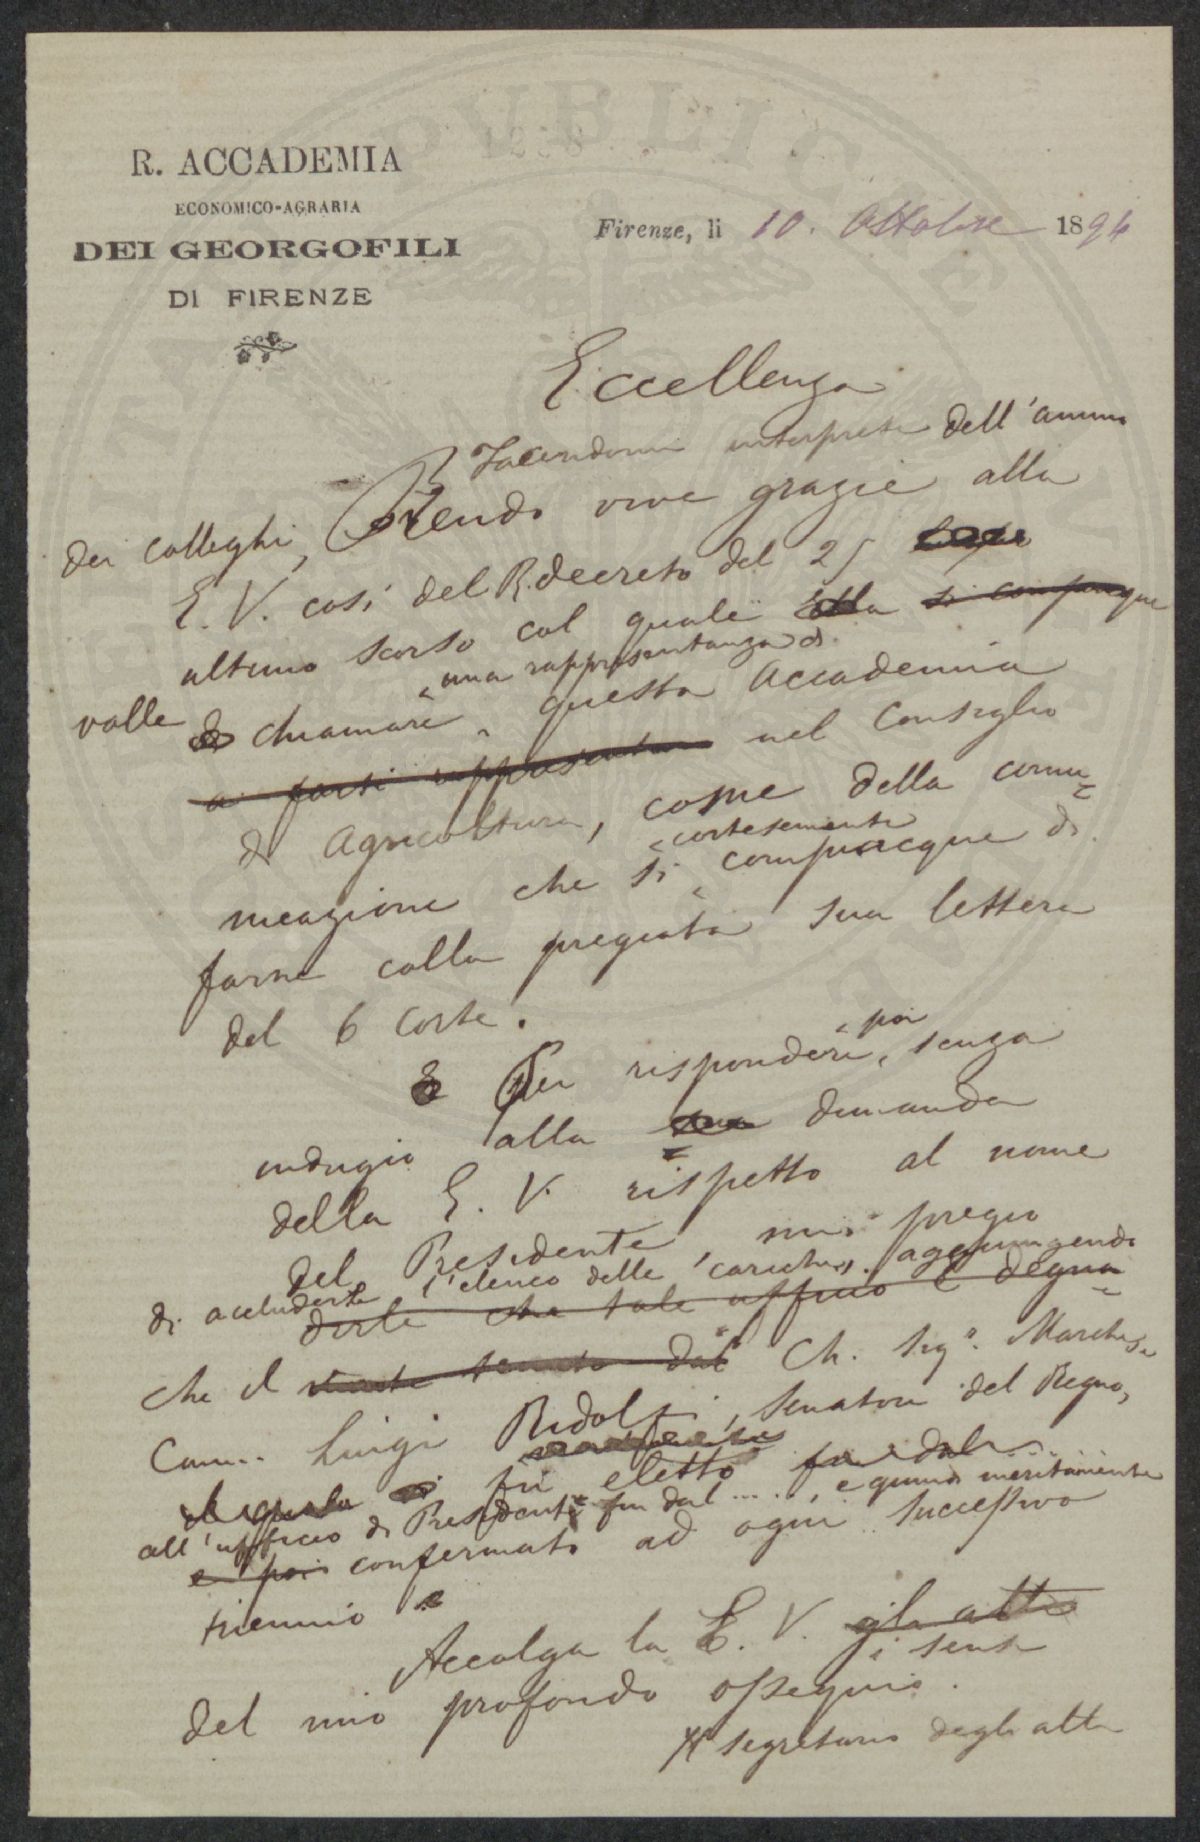 R. ACCADEMIA
ECONOMICO-AGRARIA
DEI GEORGOFILI
DI FIRENZE
Firenze, li 10. Ottobre 1894
PVBLICAE
Eccellenza
Facendomi interprete dell'animo
dei colleghi, Rendo vive grazie alla
E. V. così del R. decreto del 25
ultimo scorso col quale Ella si compiacque
volle chiamare una rappresentanza di questa Accademia
a farsi rappresentare nel Consiglio
di Agricoltura, come della comu=
nicazione che si cortesemente compiacque di
farne colla pregiata sua lettera
del 6 corte.
Per rispondere poi senza
indugio alla sua domanda
della E. V. rispetto al nome
del Presidente mi pregio
di accluderle l'elenco delle cariche, aggiungendo
dirle che tale ufficio è degna=
che il mente tenuto dal Ch. Sigr. Marchese
Comm. Luigi Ridolfi, Senatore del Regno,
il quale fu eletto fin dal ......
all'ufficio di Presidente fin dal ....., e quindi meritamente
e poi confermato ad ogni successivo
triennio
Accolga la E. V. gli atti
i sensi
del mio profondo ossequio.
Il segretario degli atti